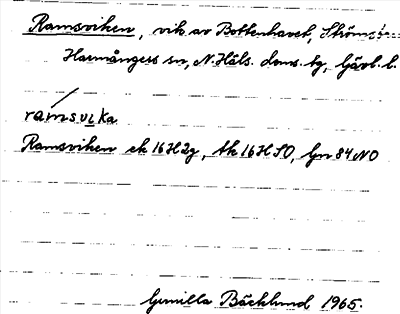 Ramsviken, vik av Bottenhavet,
Harmångers sn, N.Häls. doms. tg, Gävl. l.
ramsvika
Ramsviken ek 16H2g, tk 16H SO, Gn 84 NO
Gunilla Bäcklund 1965.